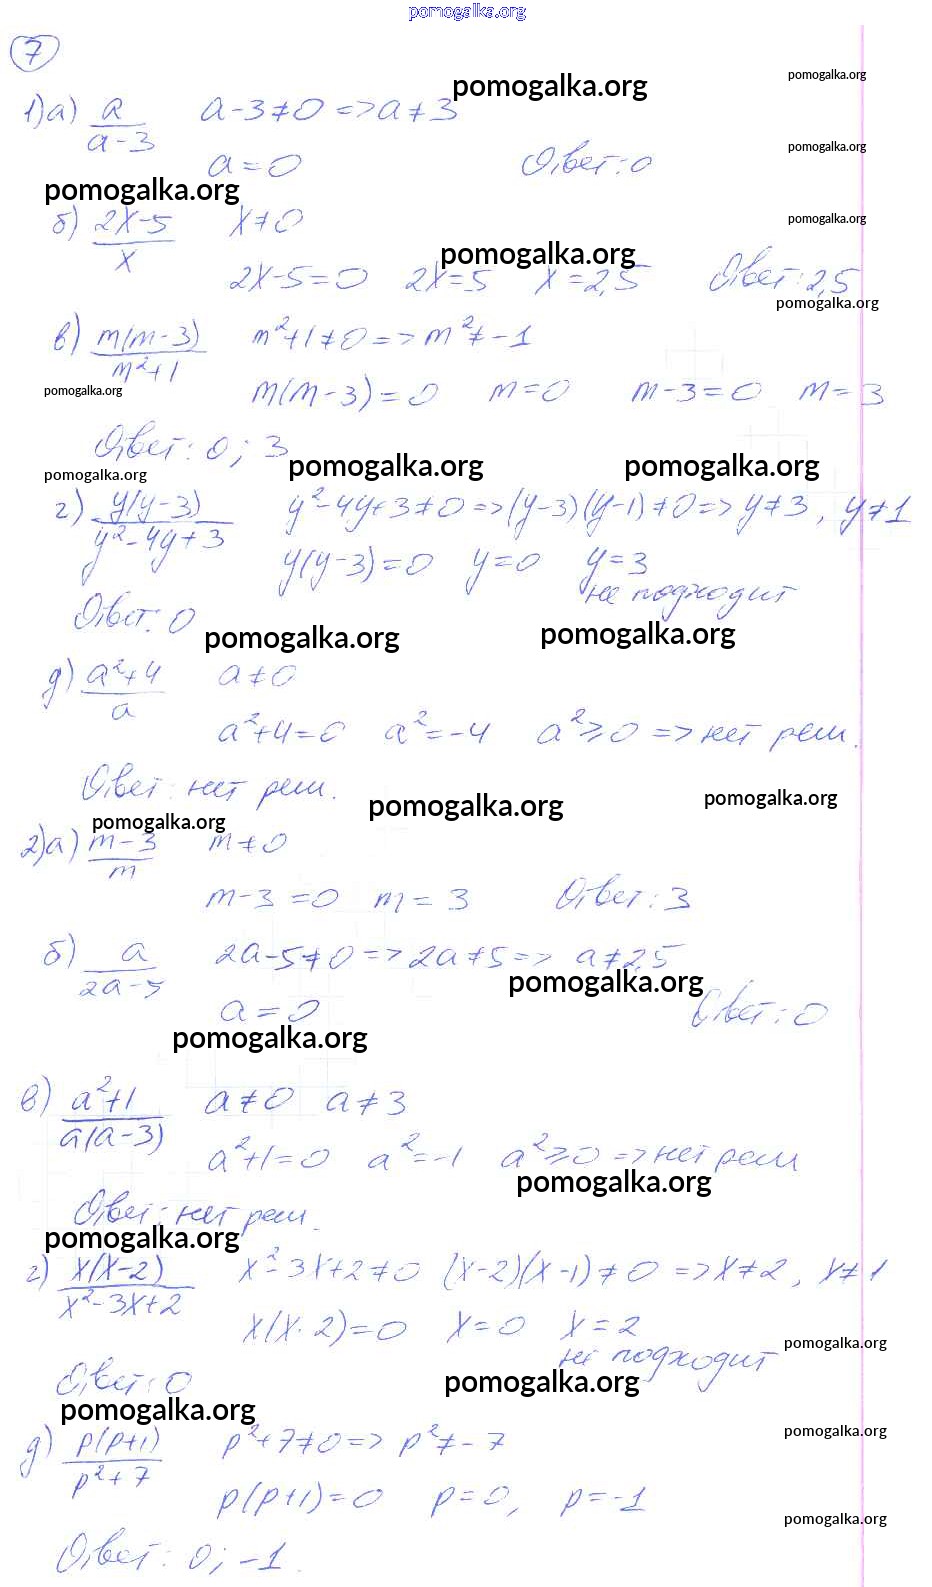 pomogalka.org
7
pomogalka.org pomogalka.org
1) а) a/(a-3) a-3≠0 => a≠3
pomogalka.org
a=0 Ответ: 0
pomogalka.org
pomogalka.org
б) (2x-5)/x x≠0
pomogalka.org
2x-5=0 2x=5 x=2,5 Ответ: 2,5
pomogalka.org
в) m(m-3)/(m²+1) m²+1≠0 => m²≠-1
pomogalka.org
m(m-3)=0 m=0 m-3=0 m=3
Ответ: 0; 3
pomogalka.org pomogalka.org pomogalka.org
г) y(y-3)/(y²-4y+3) y²-4y+3≠0 => (y-3)(y-1)≠0 => y≠3, y≠1
y(y-3)=0 y=0 y=3
не подходит
Ответ: 0
pomogalka.org pomogalka.org
д) (a²+4)/a a≠0
a²+4=0 a²=-4 a²≥0 => нет реш.
Ответ: нет реш.
pomogalka.org pomogalka.org
pomogalka.org
2) а) (m-3)/m m≠0
m-3=0 m=3 Ответ: 3
б) a/(2a-5) 2a-5≠0 => 2a≠5 => a≠2,5
pomogalka.org
a=0 Ответ: 0
pomogalka.org
в) (a²+1)/(a(a-3)) a≠0 a≠3
a²+1=0 a²=-1 a²≥0 => нет реш
pomogalka.org
Ответ: нет реш.
pomogalka.org
г) x(x-2)/(x²-3x+2) x²-3x+2≠0 (x-2)(x-1)≠0 => x≠2, x≠1
x(x-2)=0 x=0 x=2
pomogalka.org
не подходит
Ответ: 0
pomogalka.org
pomogalka.org
pomogalka.org
д) p(p+1)/(p²+7) p²+7≠0 => p²≠-7
p(p+1)=0 p=0, p=-1
pomogalka.org
Ответ: 0; -1.